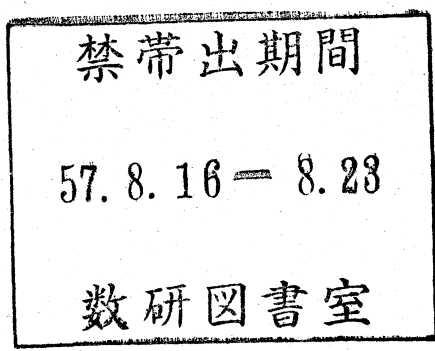 禁帯出期間
57. 8. 16 — 8. 23
数研図書室